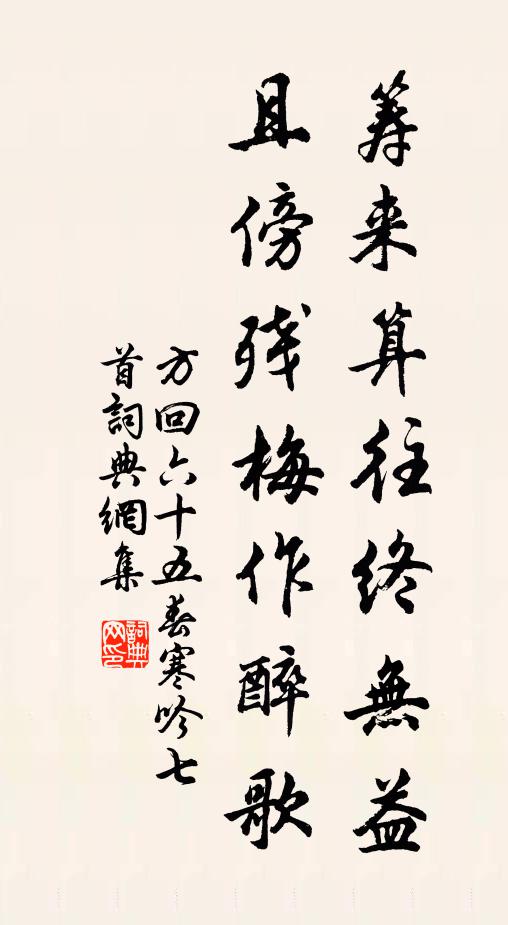 筹来算往终無益
且傍残梅作醉歌
方回六十五春寒吟七
首詞典網集
詞典网印